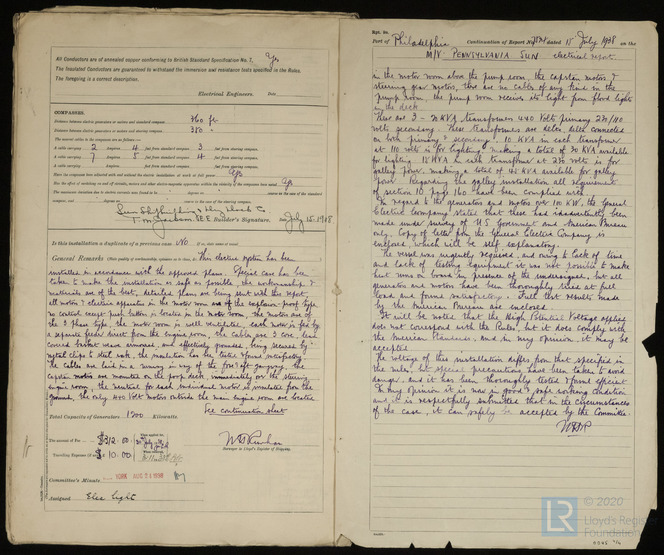 All Conductors are of annealed copper conforming to British Standard Specification No. 7. Yes
The Insulated Conductors are guaranteed to withstand the immersion and resistance tests specified in the Rules.
The foregoing is a correct description.
Electrical Engineers.
COMPASSES.
Distance between electric generators or motors and standard compass 360 feet
Distance between electric generators or motors and steering compass 350 "
The nearest cables to the compasses are as follows:—
A cable carrying 2 Ampères 4 feet from standard compass 3 feet from steering compass.
A cable carrying 7 Ampères 5 feet from standard compass 4 feet from steering compass.
A cable carrying Ampères feet from standard compass feet from steering compass.
Have the compasses been adjusted with and without the electric installation at work at full power Yes
Sun Shipbuilding & Dry Dock Co
Builder's Signature. July 15. 1938
Is this installation a duplicate of a previous case No If so, state name of vessel
General Remarks This electric system has been
installed in accordance with the approved plans. Special care has been
taken to make the installation as safe as possible, the workmanship &
materials are of the best, detailed plans are being sent with this report,
all motors & electric apparatus in the motor room are of the explosion proof type,
no control except push button is located in the motor room, the motors are of
the 3 phase type, the motor room is well ventilated, each motor is fed by
a separate feeder direct from the engine room, the cables are 3 core, lead
covered basket weave armoured, and effectively grounded, being secured by
metal clips to steel work, the insulation has been tested & found satisfactory.
The cables are laid in a runway in way of the fore & aft gangway, the
capstan motors are mounted on the poop deck, immediately over the steering
engine room, the neutral for each individual motor is insulated from the
ground, the only 440 Volt motors outside the main engine room are located
See continuation sheet
Total Capacity of Generators 1200 Kilowatts.
The amount of Fee $312.00
Travelling Expenses (if any) $10.00
Surveyor to Lloyd's Register of Shipping.
Committee's Minute NEW YORK AUG 31 1938
Assigned Elec Light
Rpt. 9a.
Port of Philadelphia Continuation of Report No. dated 15 July 1938 on the
M/V. PENNSYLVANIA SUN electrical report.
in the motor room above the pump room, the capstan motors &
steering gear motors, there are no cables of any kind in the
pump room, the pump room receives its light from flood lights
on the deck.
There are 3 - KVA transformers 440 Volts primary 230/110
volts secondary. These transformers are delta delta connected
on both primary & secondary. 10 KVA in each transformer
at 110 volts is for lighting making a total of 30 KVA available
for lighting. 15 KVA in each transformer at 230 volts is for
galley power, making a total of 45 KVA available for galley
power. Regarding the galley installation all requirements
of section 10 page 160 have been complied with.
In regard to the generators and motors over 100 KW. the General
Electric Company states that these had inadvertently been
made under survey of U.S Government and American Bureau
only. Copy of letter from the General Electric Company is
enclosed, which will be self explanatory.
The vessel was urgently required, and owing to lack of time
and lack of testing equipment it was not possible to make
heat runs on board in presence of the undersigned, but all
generators and motors have been thoroughly tried at full
load and found satisfactory. Full test results made
by the American Bureau are enclosed.
It will be noted that the High Potential Voltage applied
does not correspond with the Rules, but it does comply with
the American Standards, and in my opinion, it may be
accepted.
The voltage of this installation differs from that specified in
the rules, but special precautions have been taken to avoid
danger, and it has been thoroughly tested & found efficient.
In my opinion it is now in good & safe working condition
and it is respectfully submitted that in the circumstances
of the case, it can safely be accepted by the Committee.
LR © 2020
Lloyd's Register
Foundation